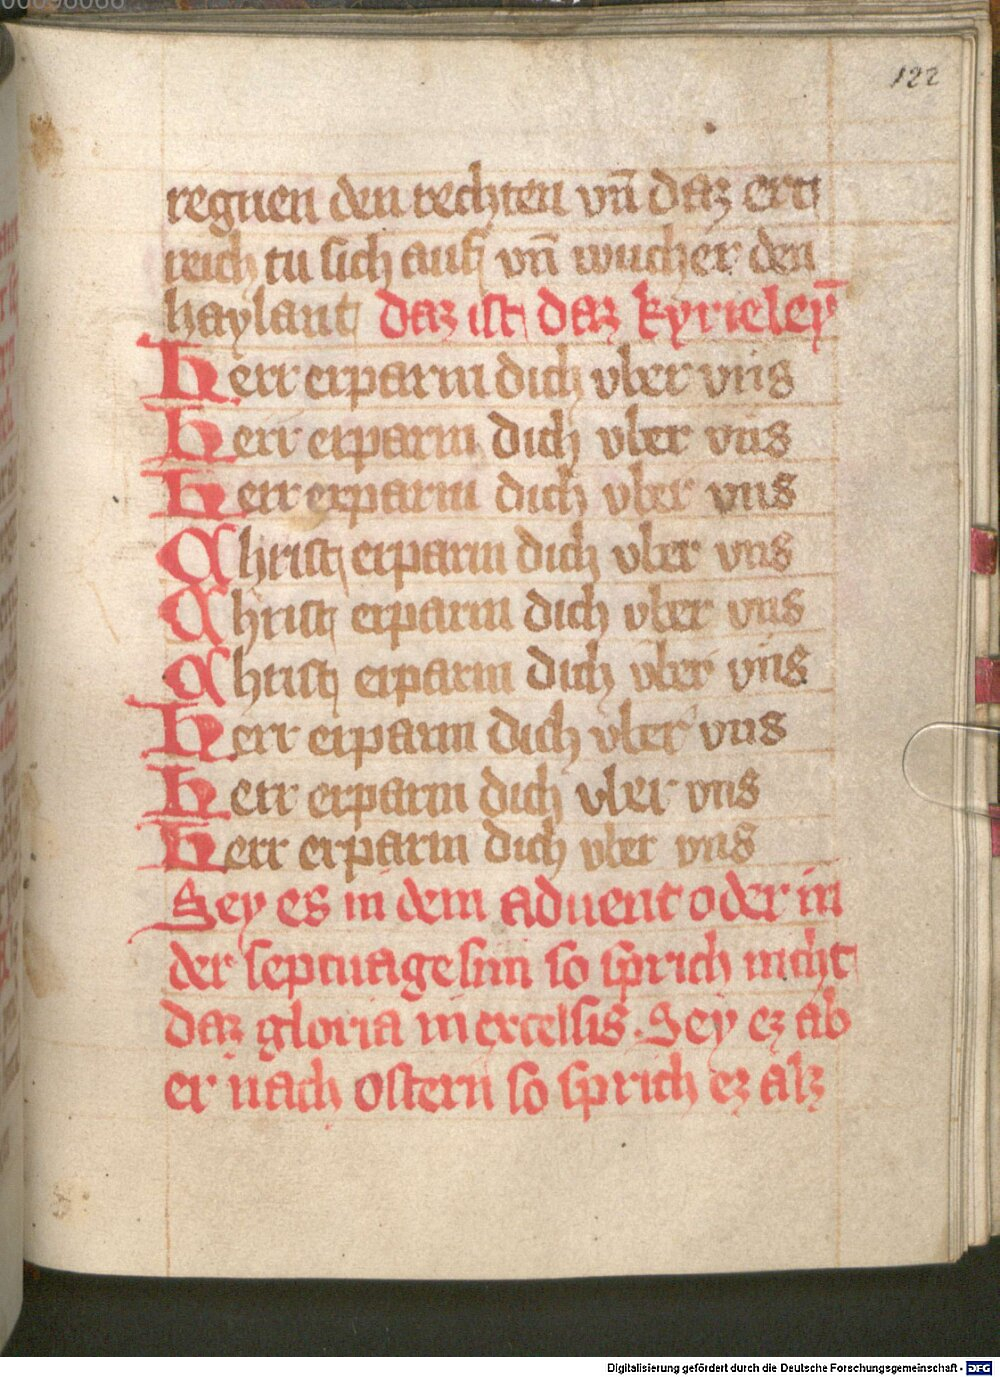 00098066
122
regnen den rechten vn̄ daz ert
reich tu sich auf vn̄ wucher den
haylant daz ist daz kyrieleẏ
Herr erparm dich vber vns
Herr erparm dich vber vns
Herr erparm dich vber vns
Christ erparm dich vber vns
Christ erparm dich vber vns
Christ erparm dich vber vns
Herr erparm dich vber vns
Herr erparm dich vber vns
Herr erparm dich vber vns
Sey es in dem aduent oder in
der septuagesim so sprich nicht
daz gloria in excelsis. Sey ez ab
er nach ostern so sprich ez alz
Digitalisierung gefördert durch die Deutsche Forschungsgemeinschaft - DFG